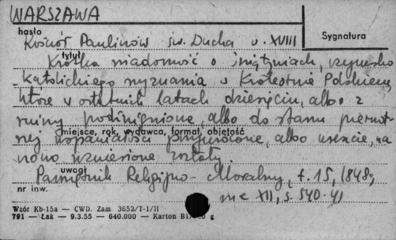 WARSZAWA
hasło
Sygnatura
Kościół Paulinów św. Ducha v. XVIII
tytuł
Krótka wiadomość o świątyniach, rzymsko
katolickiego wyznania w Królestwie Polskiem,
które w ostatnich latach dziesięciu, albo z
ruiny podźwignione, albo do stanu pierwot
miejsce, rok, wydawca, format, objętość
nej wspaniałości przywrócone, albo wreszcie, na
nowo wzniesione zostały.
uwagi
Pamiętnik Religijno-Moralny, t. 15, 1848,
nr inw.
nr XII, s. 540-41
Wzór Kb-15a — CWD. Zam. 3652/T-1/II
791 — Łak — 9.3.55 — 640.000 — Karton g